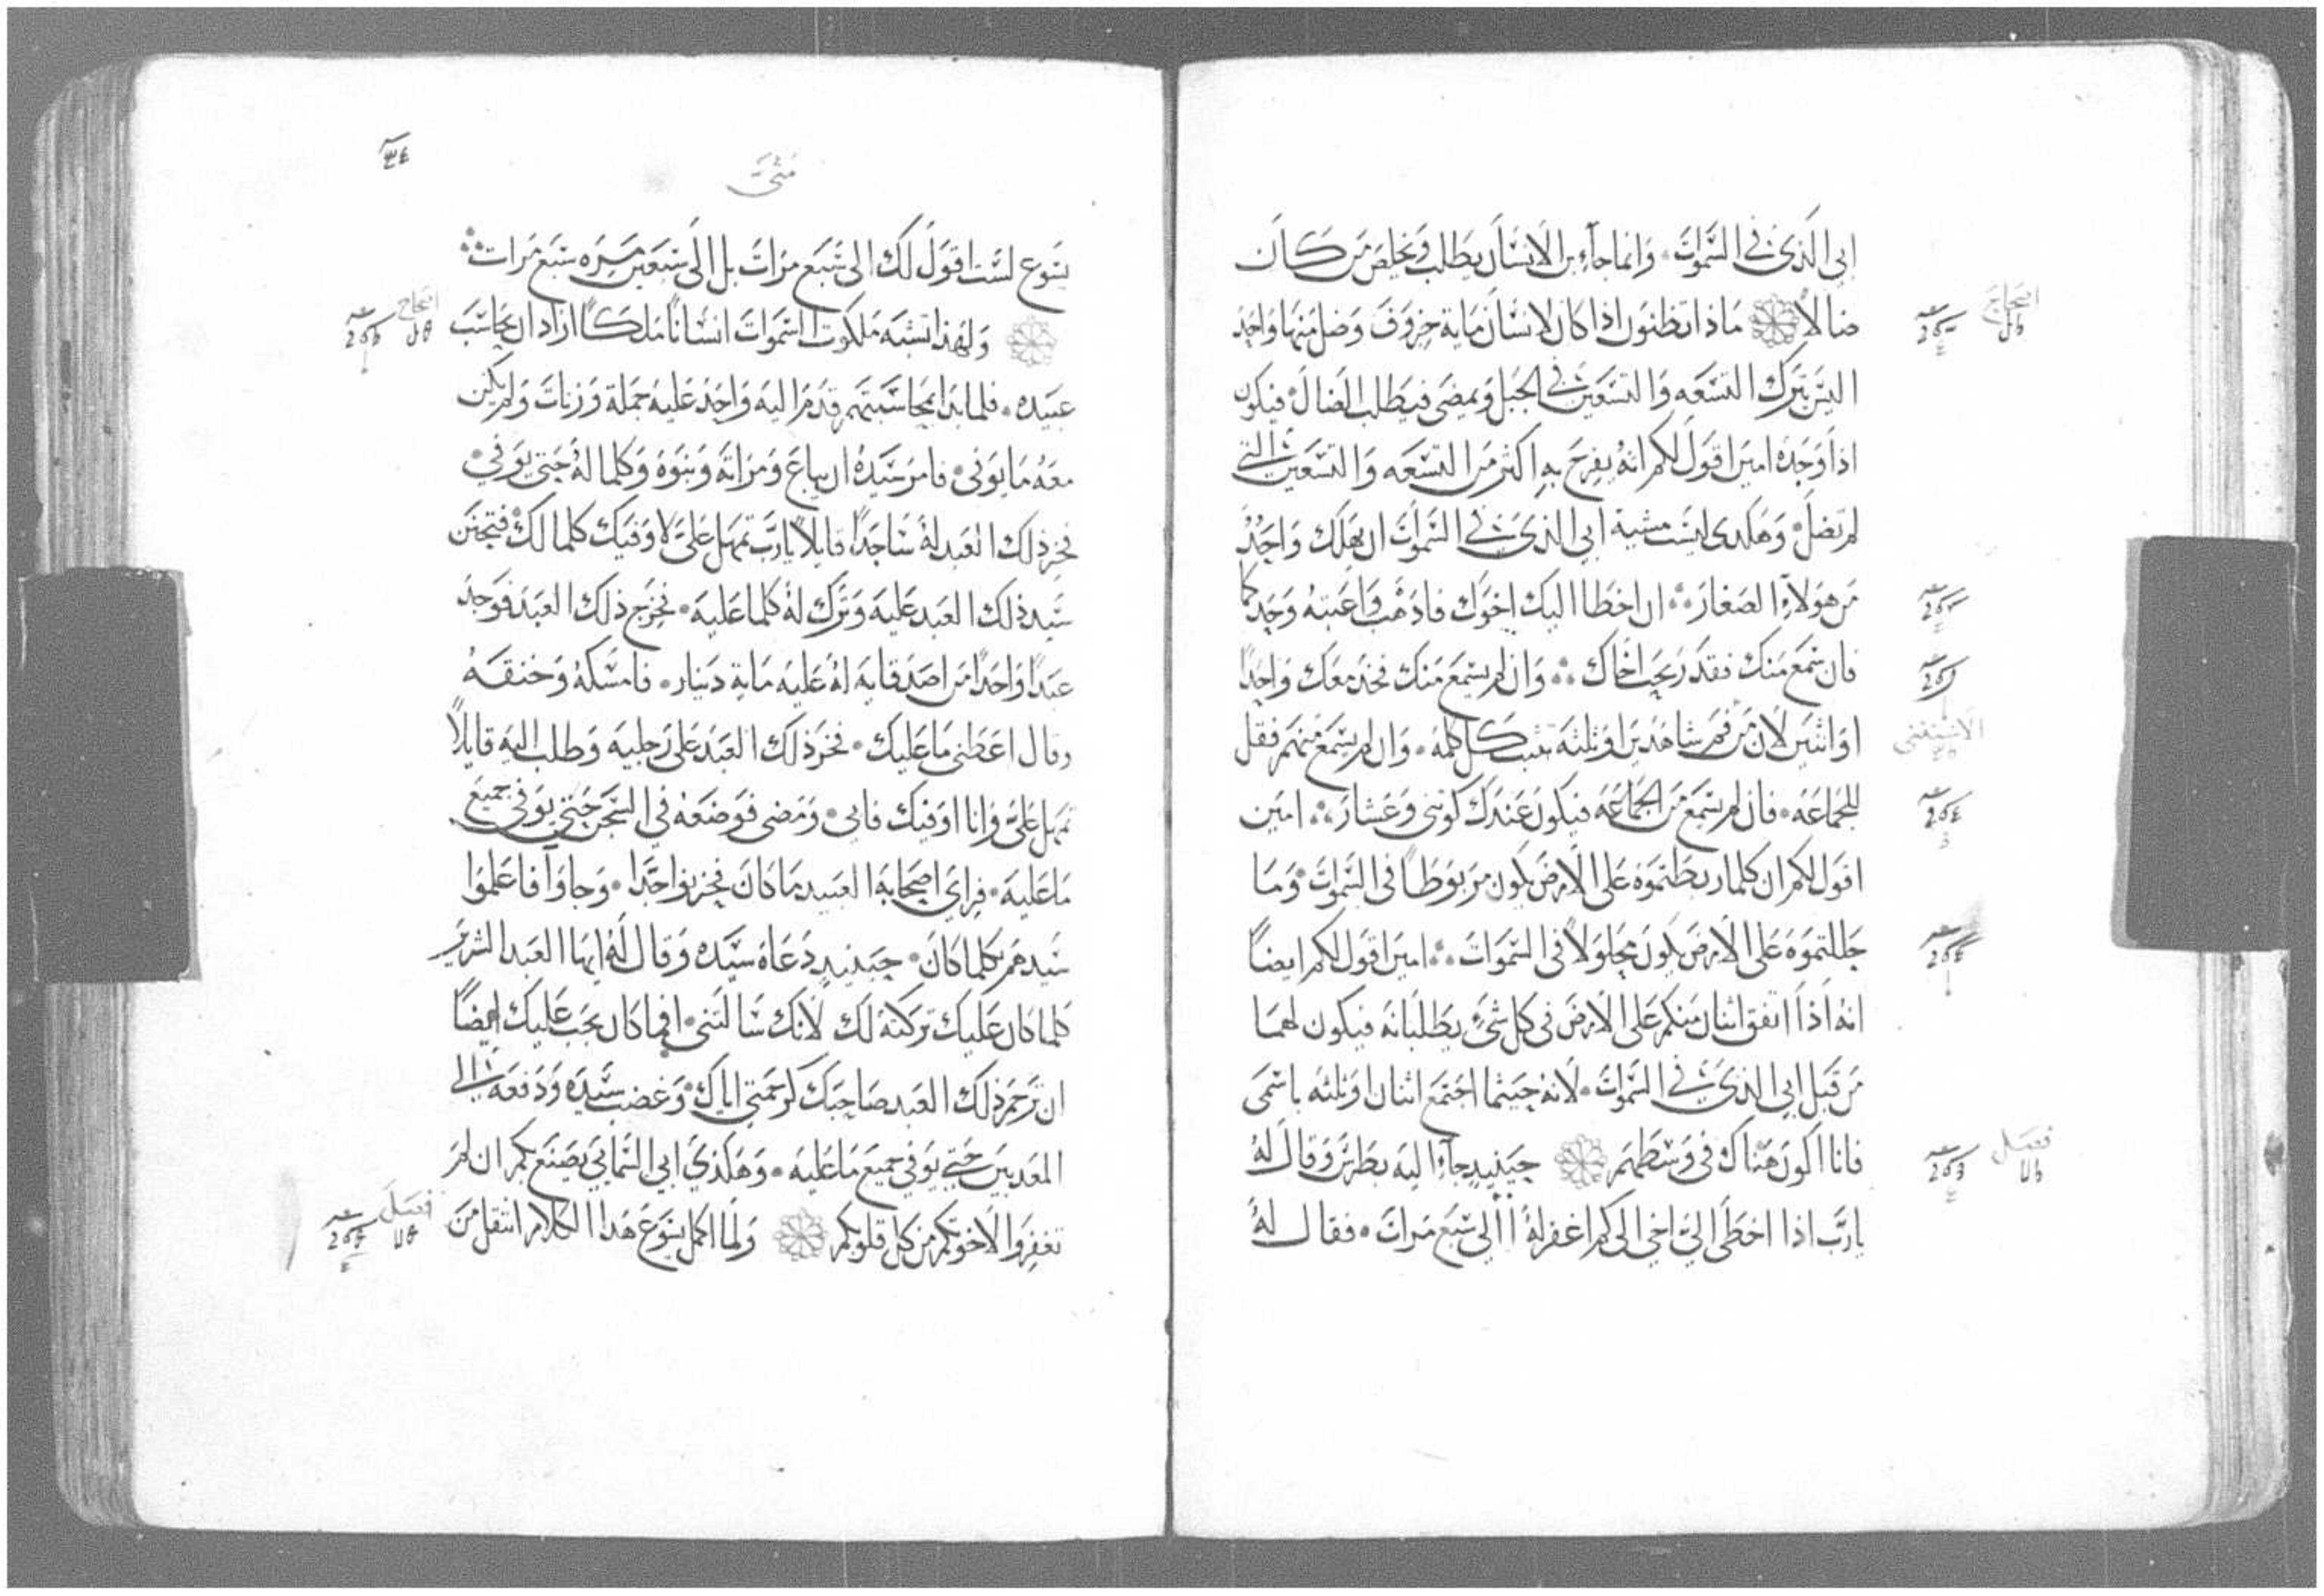 ابي الذي في السموات۰ وانما جآء ابن الانسان يطلب ويخلص من كان
ضالاً ماذا تظنون اذا كان لانسان ماية خروف وضل منها واحد
اليس يترك التسعه والتسعين في الجبل ويمضي فيطلب الضال۰ فيكون
اذا وجده امين اقول لكم انه يفرح به اكثر من التسعه والتسعين التي
لم تضل۰ وهكدى ليست مشية ابي الذي في السموات ان يهلك واحدٌ
من هولآءِ الصغار ان اخطا اليك اخوك فادهب واعتبه وحدكما
فان سمع منك فقد ربحت اخاك وان لم يسمع منك فخد معك واحداً
او اثنين لان من فم شاهدين او ثلثه تثبت كل كلمه۰ وان لم يسمع منهم فقل
للجماعه۰ فان لم يسمع من الجماعه فيكون عندك كوثني وعشار امين
اقول لكم ان كلما ربطتموه على الارض يكون مربوطاً في السموات۰ وما
حاللتموه على الارض يكون محلولاً في السموات امين اقول لكم ايضاً
انه اذا اتفق اثنان منكم على الارض في كل شيءٍ يطلبانه فيكون لهما
من قبل ابي الذي في السموات۰ لانه حيثما اجتمع اثنان او ثلثه باسمي
فانا اكون هناك في وسطهم حينيدٍ جآء اليه بطرس وقال لهُ
يارب اذا اخطى الي اخي الى كم اغفر لهُ أالى سبع مرات۰ فقال لهُ
اصحاح
الاستغنى
فصل
متى
٣٤
يسوع لست اقول لك الى سبع مرات بل الى سبعين مره سبع مرات
ولهذا تشبه ملكوت السموات انساناً ملكاً اراد ان يحاسب
عبيده۰ فلما بدا بمحاسبتهم قدم اليه واحد عليه جملة وزنات ولم يكن
معه ما يوفي۰ فامر سيده ان يباع ومراته وبنوه وكلما لهُ حتى يوفي۰
فخر ذلك العبد لهُ ساجداً قايلاً يارب تمهل علي لاوفيك كلما لك۰ فتحنن
سيد ذلك العبد عليه وترك لهُ كلما عليه۰ فخرج ذلك العبد فوجد
عبداً واحداً من اصدقايه لهُ عليه ماية دينار۰ فامسكهُ وخنقهُ
وقال اعطني ما عليك۰ فخر ذلك العبد على رجليه وطلب اليه قايلاً
تمهل علي وانا اوفيك فابى۰ ومضى فوضعه في السجن حتى يوفي جميع
ما عليه۰ فراى اصحابه العبيد ما كان فحزنوا جدا۰ وجاوآ فاعلموا
سيدهم بكلما كان۰ حينيدٍ دعاه سيده وقال لهُ ايها العبد الشرير
كلما كان عليك تركته لك لانك سالتني۰ افما كان يجب عليك ايضاً
ان ترحم ذلك العبد صاحبك كرحمتي اياك۰ وغضب سيده ودفعه الى
المعدبين حتى يوفي جميع ما عليه۰ وهكذي ابي السمايي يصنع بكم ان لم
تغفروا لاخوتكم من كل قلوبكم ولما اكمل يسوع هدا الكلام انتقل من
اصحاح
فصل